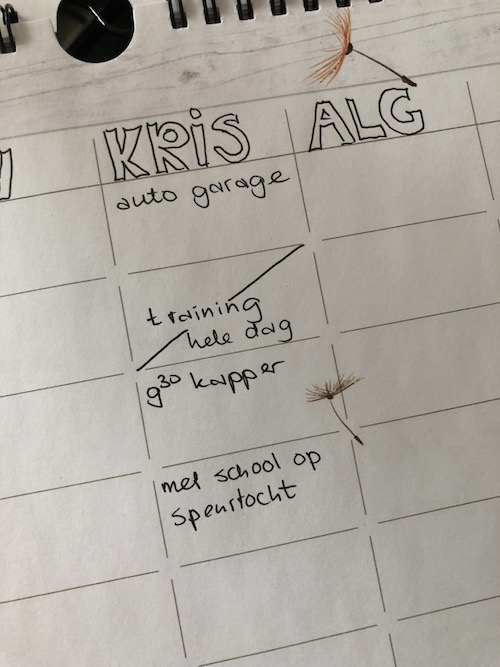 KRIS ALG
auto garage
training
hele dag
9³⁰ kapper
met school op
speurtocht